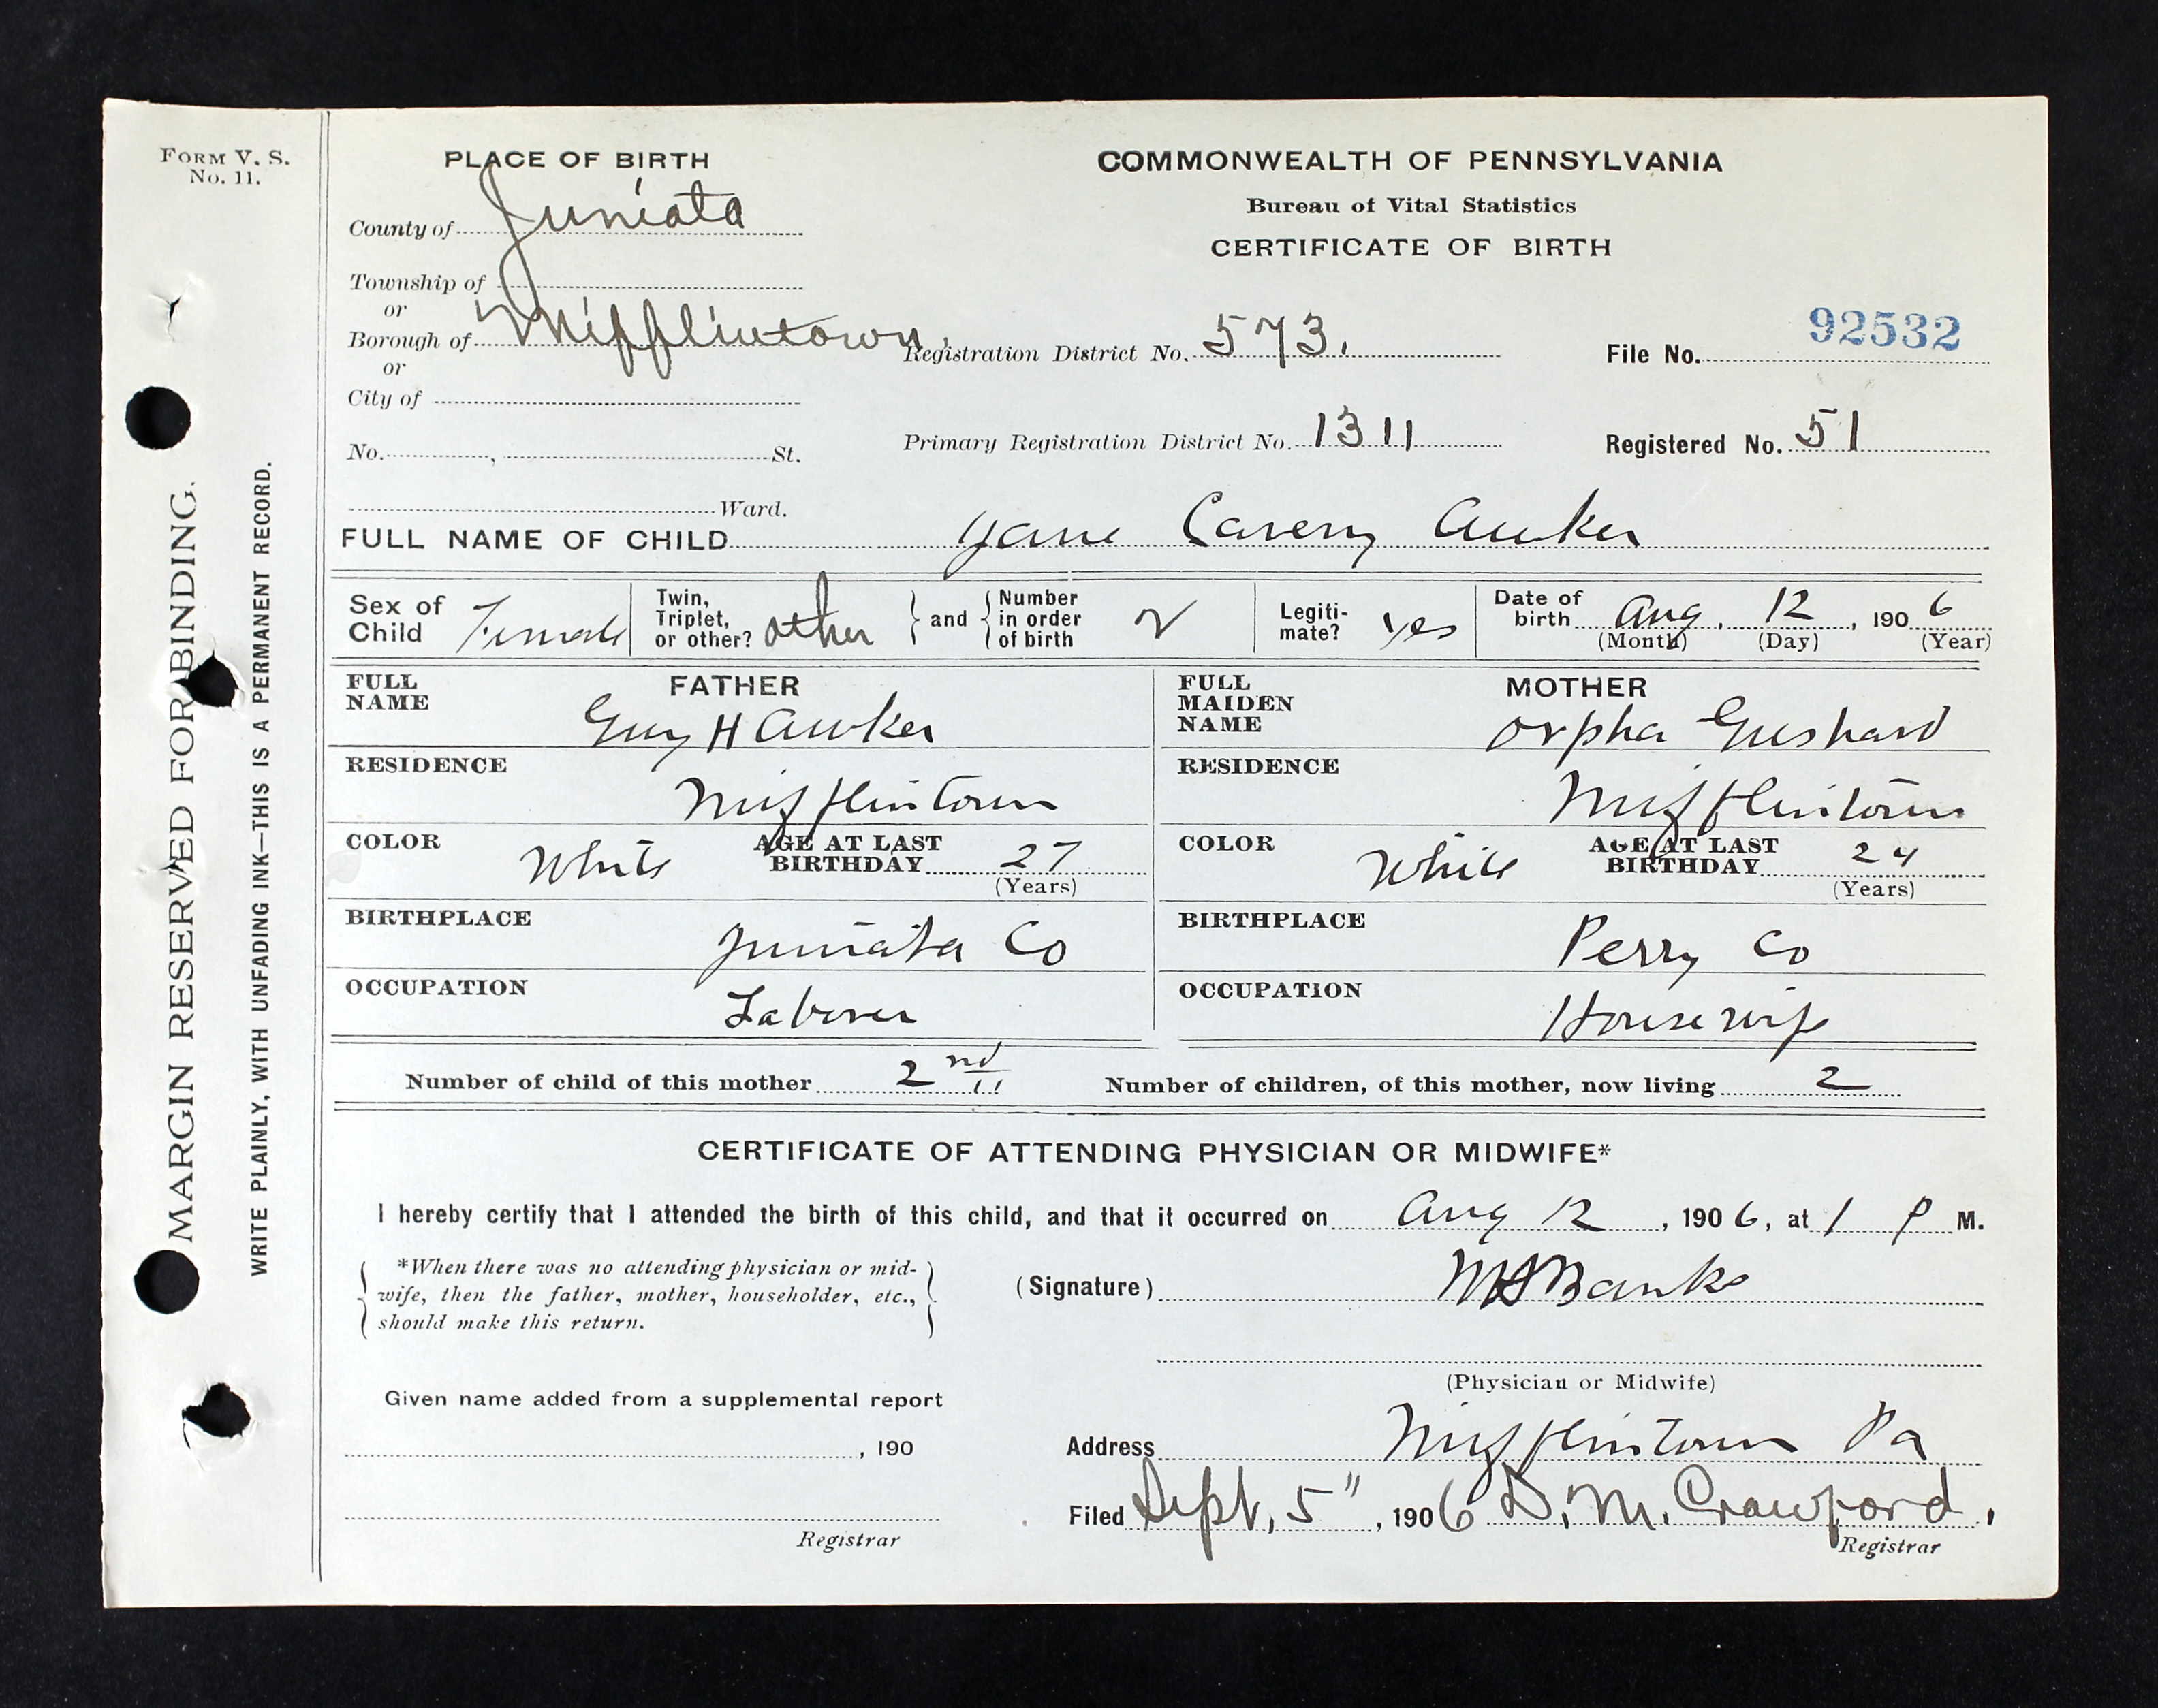 FORM V. S.
No. 11.
MARGIN RESERVED FOR BINDING.
WRITE PLAINLY, WITH UNFADING INK—THIS IS A PERMANENT RECORD.
PLACE OF BIRTH
County of Juniata
Township of
or
Borough of Mifflintown.
or
City of
No. , St.
Ward.
COMMONWEALTH OF PENNSYLVANIA
Bureau of Vital Statistics
CERTIFICATE OF BIRTH
Registration District No. 573.
File No. 92532
Primary Registration District No. 1311
Registered No. 51
FULL NAME OF CHILD Jane Aucker
Sex of Child Female
Twin, Triplet, or other? other
and Number in order of birth 2
Legitimate? yes
Date of birth Aug. 12, 1906
(Month) (Day) (Year)
FATHER
FULL NAME Guy H Aucker
RESIDENCE Mifflintown
COLOR White
AGE AT LAST BIRTHDAY 27
(Years)
BIRTHPLACE Juniata Co
OCCUPATION Laborer
MOTHER
FULL MAIDEN NAME Orpha
RESIDENCE Mifflintown
COLOR White
AGE AT LAST BIRTHDAY 24
(Years)
BIRTHPLACE Perry Co
OCCUPATION Housewife
Number of child of this mother 2nd
Number of children, of this mother, now living 2
CERTIFICATE OF ATTENDING PHYSICIAN OR MIDWIFE*
I hereby certify that I attended the birth of this child, and that it occurred on Aug 12, 1906, at 1 P M.
*When there was no attending physician or mid-
wife, then the father, mother, householder, etc.,
should make this return.
(Signature) Banks
(Physician or Midwife)
Given name added from a supplemental report
, 190
Registrar
Address Mifflintown Pa
Filed Sept, 5", 1906 D. M. Crawford.
Registrar